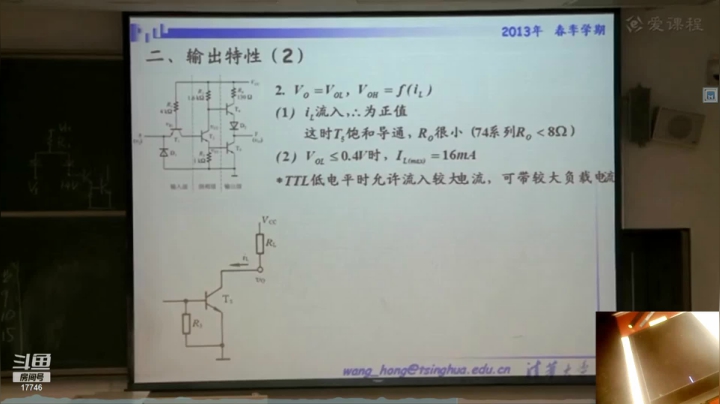 2013年 春季学期
爱课程
二、输出特性（2）
2. V_O = V_OL, V_OH = f(i_L)
(1) i_L流入,∴为正值
这时T₅饱和导通, R_O很小 (74系列R_O < 8Ω)
(2) V_OL ≤ 0.4V时, I_L(max) = 16mA
*TTL低电平时允许流入较大电流, 可带较大负载电流
输入级 倒相级 输出级
V_CC
R_L
i_L
υ_O
T₅
R₃
wang_hong@tsinghua.edu.cn 清华大学
斗鱼
房间号
17746